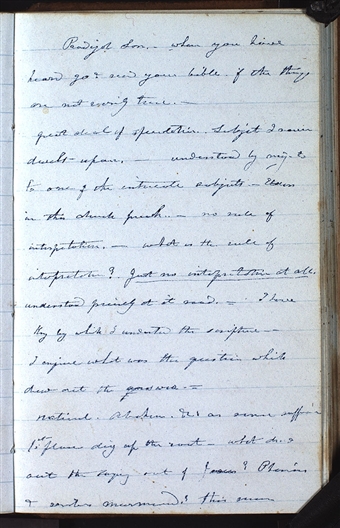 Prodigal Son,— when you have
heard go & read your bible, if the things
are not verily true.—
great deal of speculation. Subject I never
dwelt upon.— understood by many. to
be one of the intricate subjects— Elders
in this church preach.— no rule of
interpretation.— what is the rule of
interpretation? Just no interpretation at all.
understood precisely as it read.— I have
Key by which I understand the scripture—
I enquire what was the question which
drew out the answer.—
national. Abraham. &c as some suppose
1st place dig up the root— what drew
out the saying out of Jesus? Pharisees
& scribes murmured! this man